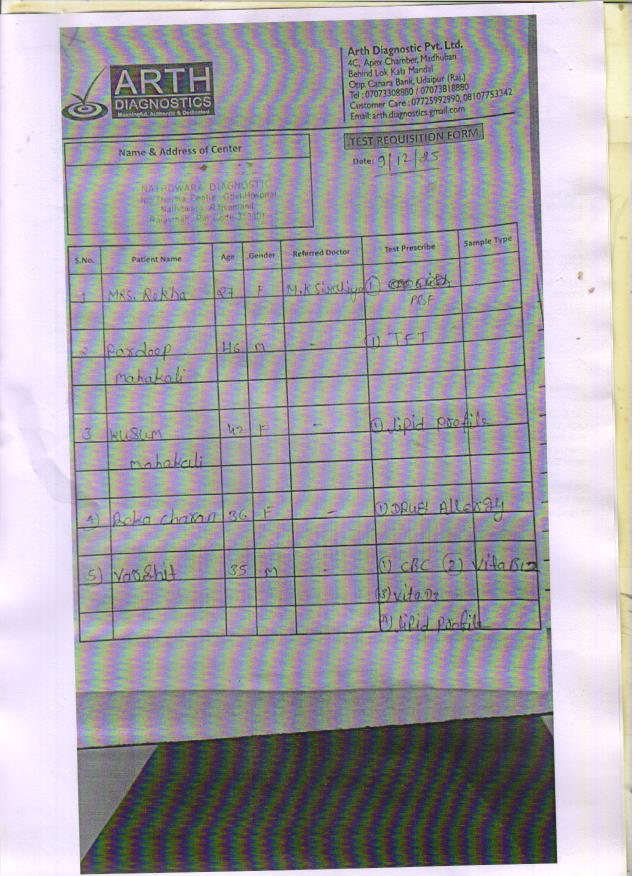 ARTH
DIAGNOSTICS
Meaningful, Authentic & Dedicated
Arth Diagnostic Pvt. Ltd.
4C, Apex Chamber, Madhuban
Behind Lok Kala Mandal
Opp. Canara Bank, Udaipur (Raj.)
Tel : 07073308880 / 07073818880
Customer Care : 07725992990, 08107753342
Email: arth.diagnostics@gmail.com
Name & Address of Center
TEST REQUISITION FORM
Date: 9/12/25
NATHDWARA DIAGNOSTIC
Nathdwara, Rajsamand
S.No. Patient Name Age Gender Referred Doctor Test Prescribe Sample Type
1 MRS. Rekha 27 F M.K (1)
PBF
2 Pardeep 46 M - (1) TFT
mahakali
3 Kusum 42 F - (1) lipid profile
mahakali
4) charan 36 F - (1) DRUG Allergy
5) Varshit 35 M - (1) CBC (2) VitaB12
(3) vitaD3
(4) lipid profile